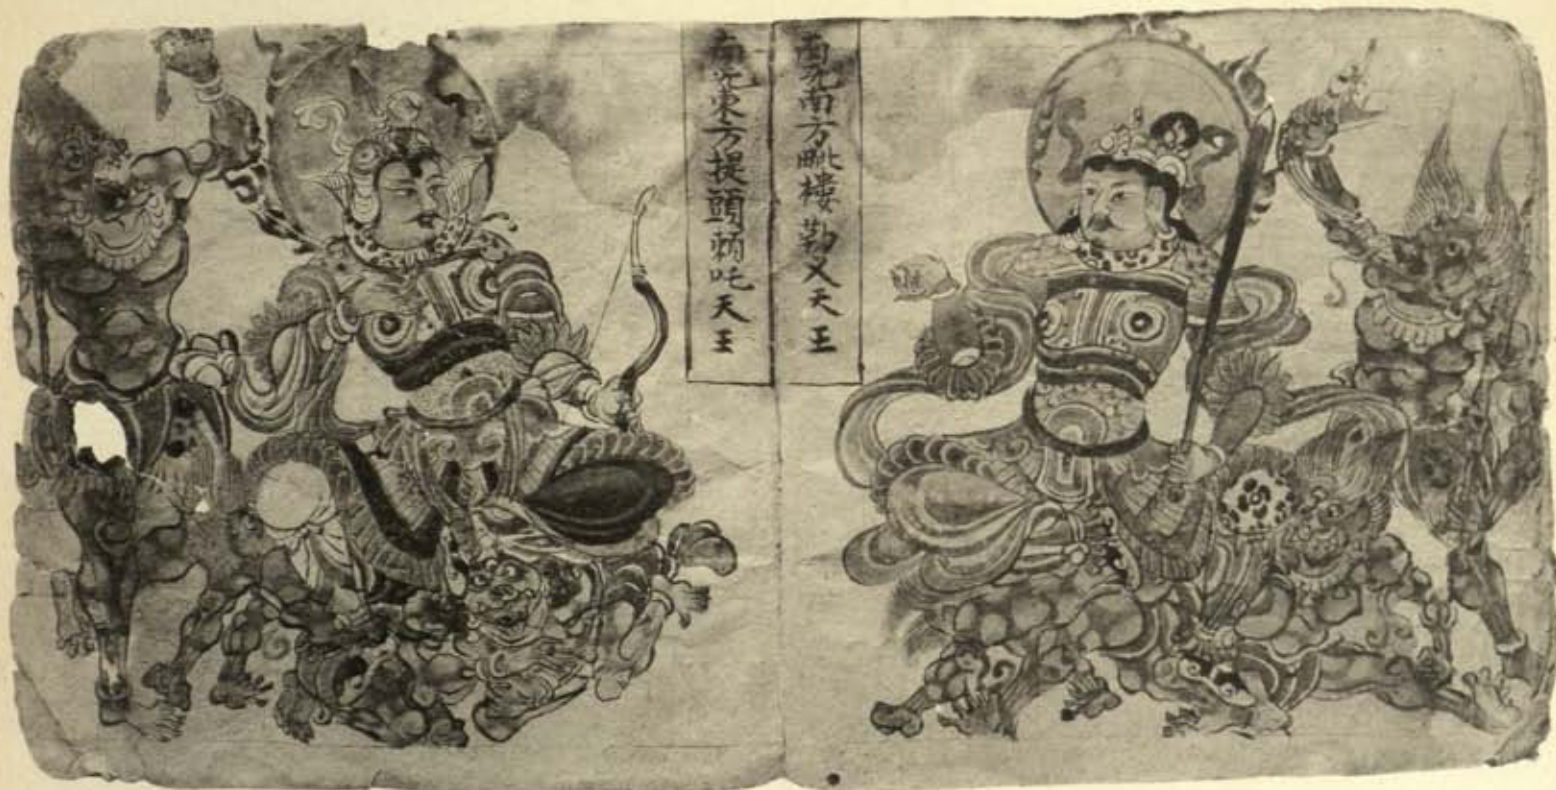 南无南方毗樓勒叉天王
南无東方提頭賴吒天王